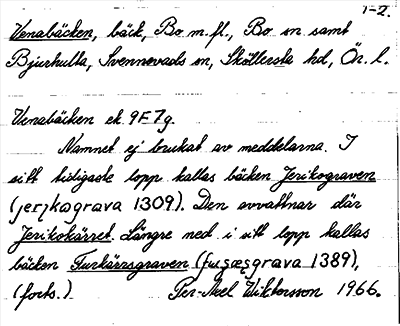 1-2.
Venabäcken, bäck, Bo m.fl., Bo sn samt
Bjurhulta, Svennevads sn, Sköllersta hd, Ör. l.
Venabäcken ek. 9F7g.
Namnet ej brukat av meddelarna. I
sitt tidigaste lopp kallas bäcken Jerikograven
(jerikagrava 1309). Den avvattnar där
Jerikokärret. Längre ned i sitt lopp kallas
bäcken Furkärrsgraven (1389),
(forts.) Per-Axel Wiktorsson 1966.